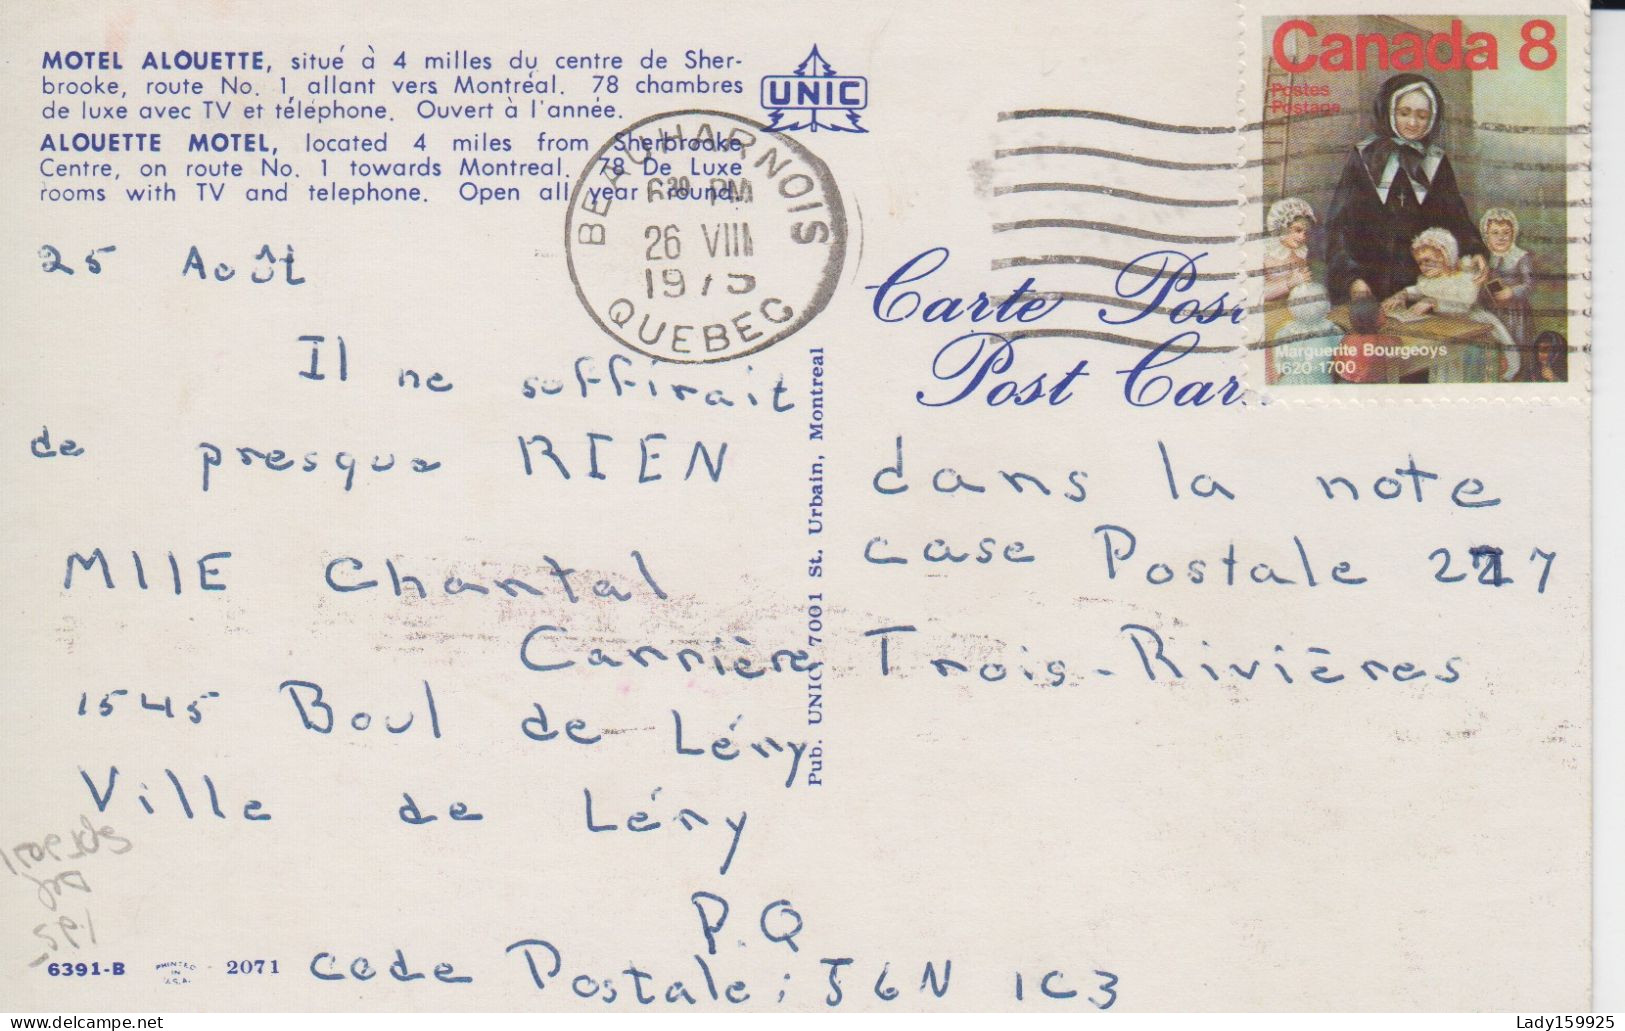 MOTEL ALOUETTE, situé à 4 milles du centre de Sher-
brooke, route No. 1, allant vers Montréal. 78 chambres
de luxe avec TV et téléphone. Ouvert à l'année.
ALOUETTE MOTEL, located 4 miles from Sherbrooke
Centre, on route No. 1 towards Montreal. 78 De Luxe
rooms with TV and telephone. Open all year round.
UNIC
BEAUHARNOIS
PM
26 VIII
1975
QUEBEC
Canada 8
Postes
Postage
Marguerite Bourgeoys
1620-1700
Carte Pos
Post Car
25 Août
Il ne suffirait
de presque RIEN
MllE Chantal
Carrière
1545 Boul de Léry
Ville de Léry
P.Q
Code Postale: J6N 1C3
dans la note
case Postale 227
Trois-Rivières
Pub. UNIC, 7001 St. Urbain, Montreal
6391-B PRINTED IN U.S.A. 2071
Lady159925